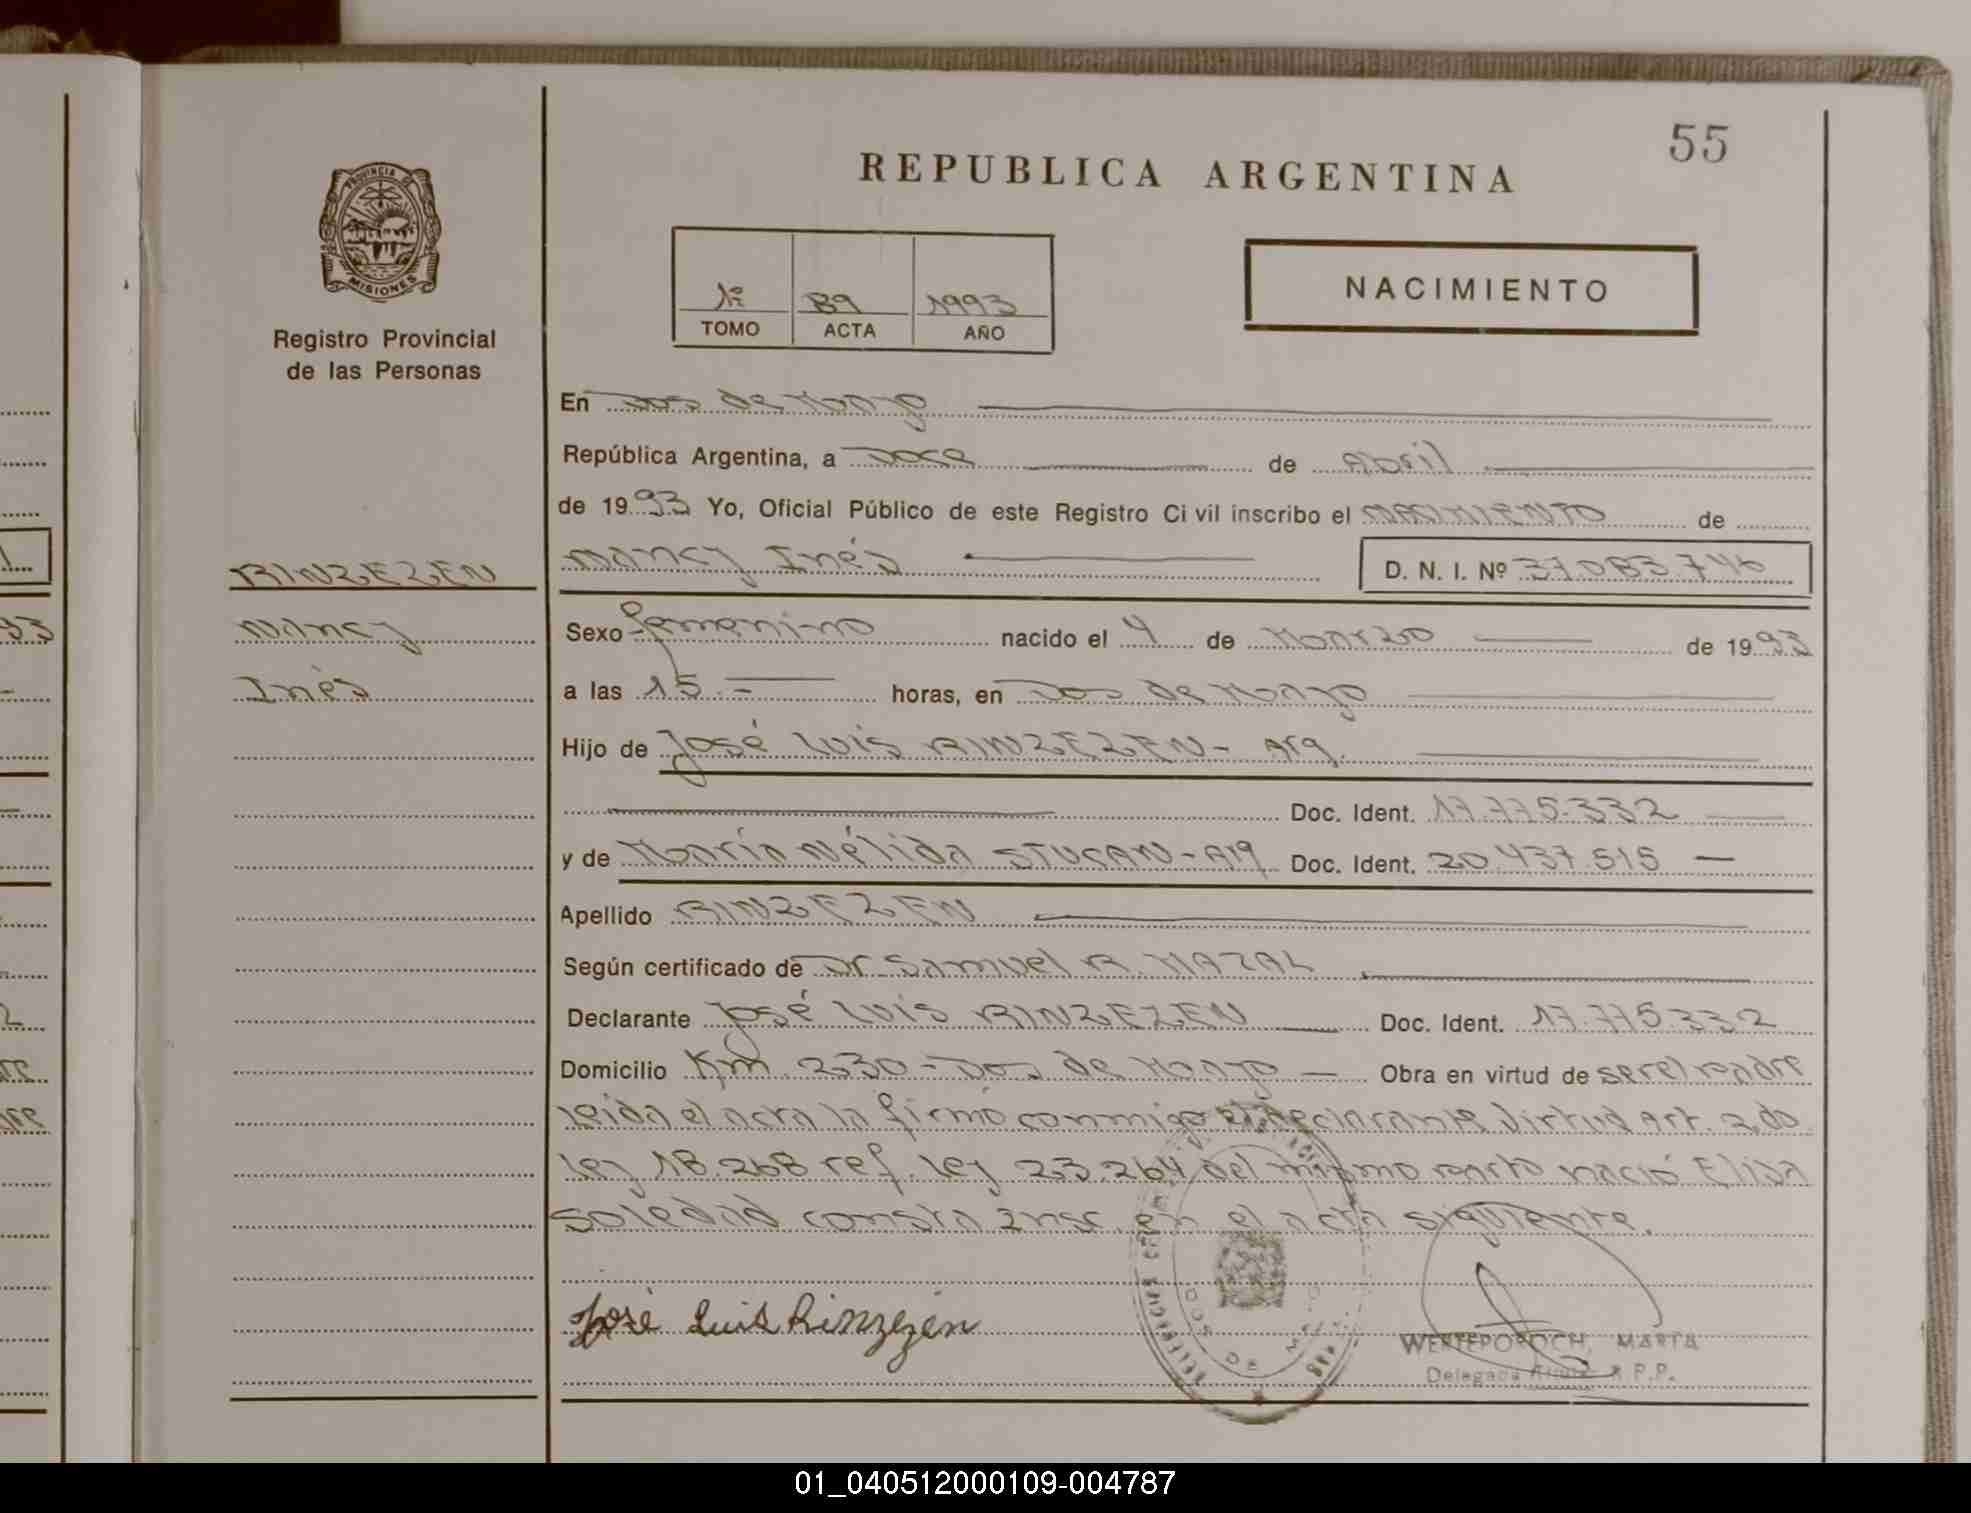 55
REPUBLICA ARGENTINA
PROVINCIA DE
MISIONES
Registro Provincial
de las Personas
1º 89 1993
TOMO ACTA AÑO
NACIMIENTO
En Dos de Mayo
República Argentina, a Doce de Abril
de 1993 Yo, Oficial Público de este Registro Civil inscribo el NACIMIENTO de
RINZEZEN
Nancy
Inés
Nancy Inés D. N. I. Nº 37.083.746
Sexo femenino nacido el 4 de Marzo de 1993
a las 15.- horas, en Dos de Mayo
Hijo de José Luis RINZEZEN- Arg.
Doc. Ident. 17.775.332
y de María Nélida STUCAN-Arg Doc. Ident. 20.437.515
Apellido RINZEZEN
Según certificado de Dr. Samuel R. MAZAL
Declarante José Luis RINZEZEN Doc. Ident. 17.775.332
Domicilio Km. 230-Dos de Mayo Obra en virtud de ser el padre
leida el acta la firmó conmigo el declarante Virtud Art. 2do
ley 18.268 ref. ley 23.264 del mismo parto nació Elida
Soledad consta insc. en el acta siguiente.
José Luis Rinzezen
DOS DE MAYO
WERTEPOROCH, MARTA
Delegada R.P.P.
01_040512000109-004787